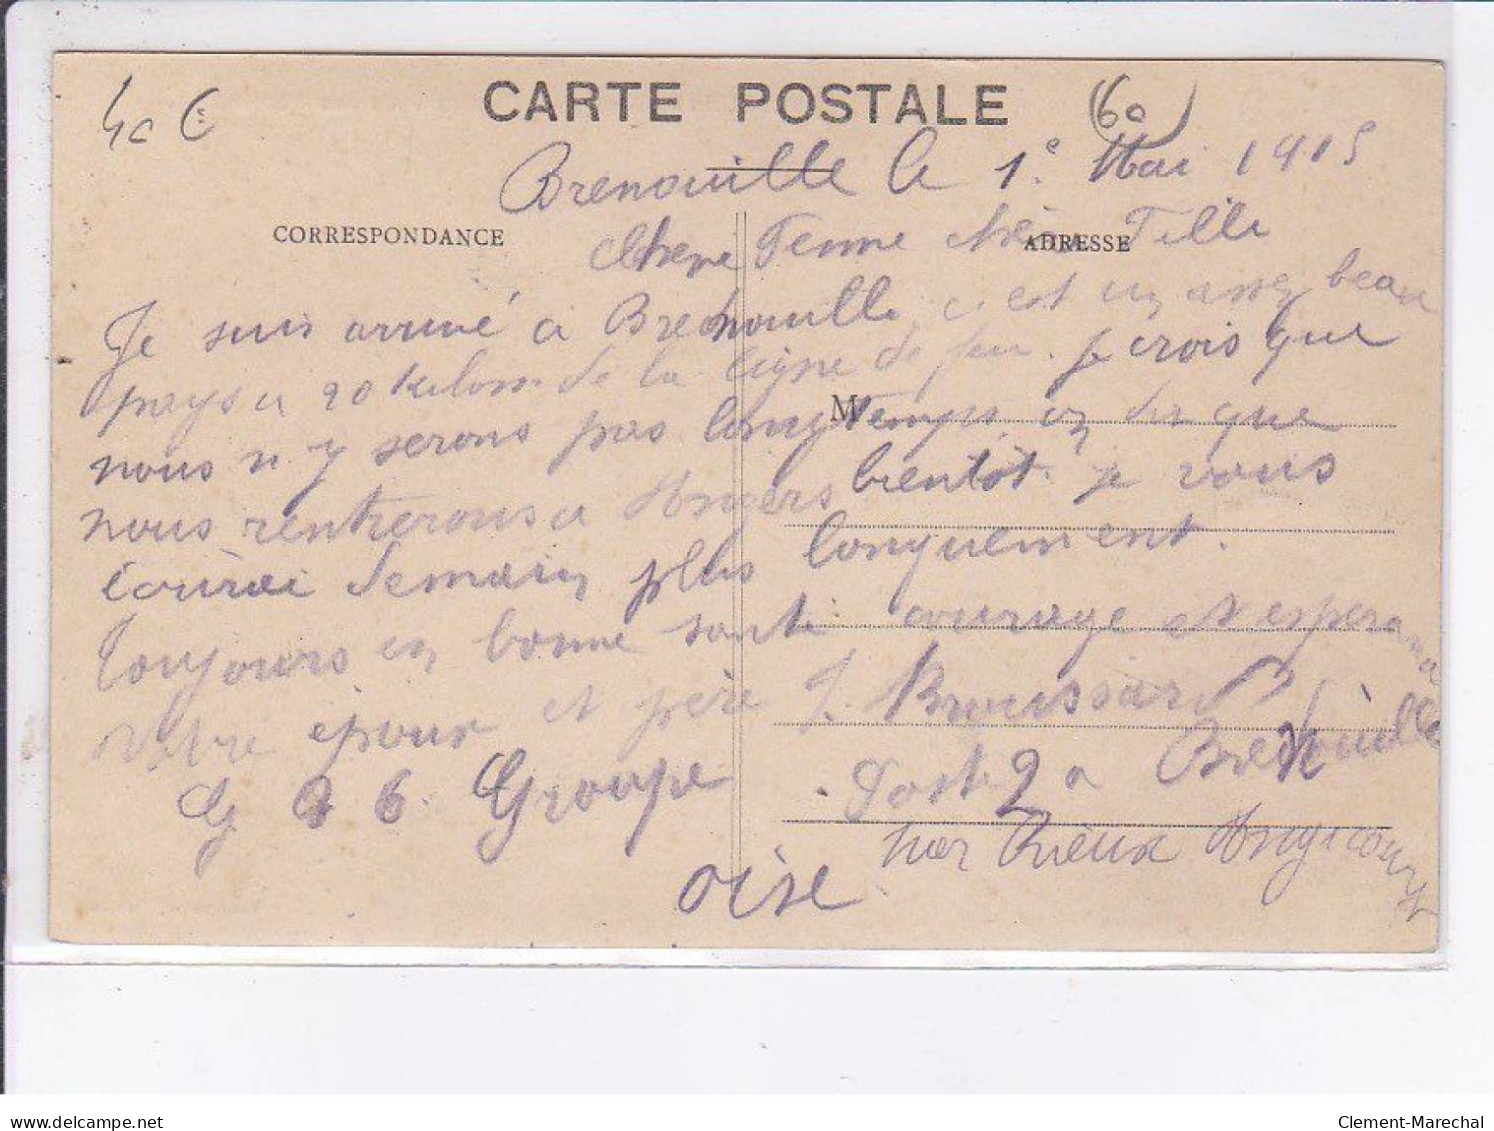 40 €
CARTE POSTALE
(60)
Brenouille le 1e Mai 1915
CORRESPONDANCE
ADRESSE
Chere Femme chère Fille
Je suis arrivé a Brenouille, c'est un assez beau
pays a 20 kilom de la ligne de feu. Je crois que
nous n'y serons pas longtemps on dis que
M
nous rentrerons a Angers bientôt. je vous
écrirai demain plus longuement.
Toujours en bonne santé courage et espérance
Votre époux et père J. Broussard
G 6. Groupe Poste 2 a Brenouille
par Rieux Angicourt
Oise
delcampe.net
Clement-Marechal